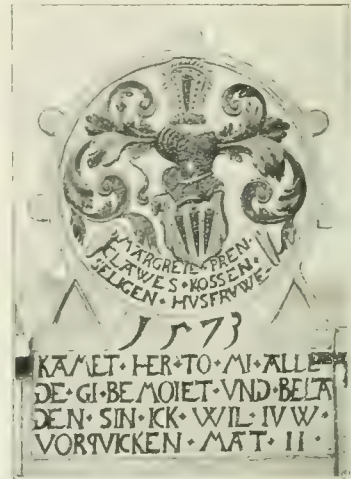 MARGRETE · PREN ·
CLAWES · KOSSEN ·
SELIGEN · HVSFRVWE ·
1573
KAMET · HER · TO · MI · ALLE
DE · GI · BEMOIET · VND · BELA
DEN · SIN · ICK · WIL · IVW ·
VORQVICKEN · MAT · II ·